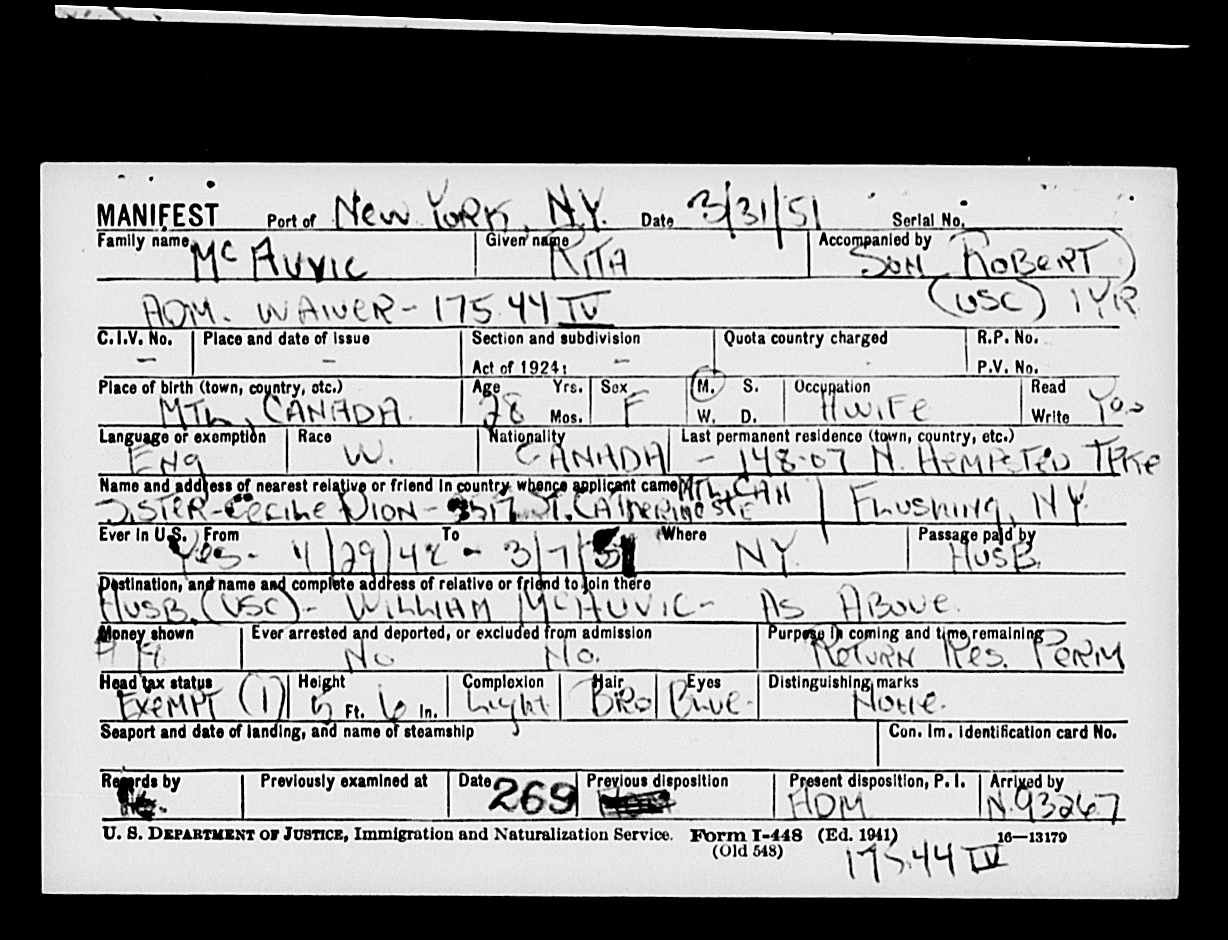 MANIFEST Port of New York, N.Y. Date 3/31/51 Serial No.
Family name McAuvic Given name Rita Accompanied by Son Robert)
ADM. WAIVER - 175.44 IV (USC) 1 YR
C.I.V. No. Place and date of issue Section and subdivision Quota country charged R.P. No.
- - Act of 1924: - P.V. No.
Place of birth (town, country, etc.) Age Yrs. Sex M. S. Occupation Read
MTL, CANADA. 28 Mos. F W. D. HWIFE Write Yes
Language or exemption Race Nationality Last permanent residence (town, country, etc.)
Eng W. CANADA - 148-07 N. HEMPSTED TPKE
Name and address of nearest relative or friend in country whence applicant came MTL, CAN
SISTER - Cecile DION - 3517 ST. CATHERINE STE FLUSHING, NY.
Ever in U.S. From To Where Passage paid by
Yes - 4/29/42 - 3/7/51 NY. HUSB.
Destination, and name and complete address of relative or friend to join there
HUSB. (USC) - WILLIAM McAUVIC - AS ABOVE.
Money shown Ever arrested and deported, or excluded from admission Purpose in coming and time remaining
No No. RETURN RES. PERM
Head tax status Height Complexion Hair Eyes Distinguishing marks
EXEMPT (1) 5 Ft. 6 In. Light BRO BLUE- NONE.
Seaport and date of landing, and name of steamship Con. Im. Identification card No.
Records by Previously examined at Date Previous disposition Present disposition, P. I. Arrived by
269 ADM N.93267
U. S. DEPARTMENT OF JUSTICE, Immigration and Naturalization Service. Form I-448 (Ed. 1941) 16—13179
(Old 548) 175.44 IV